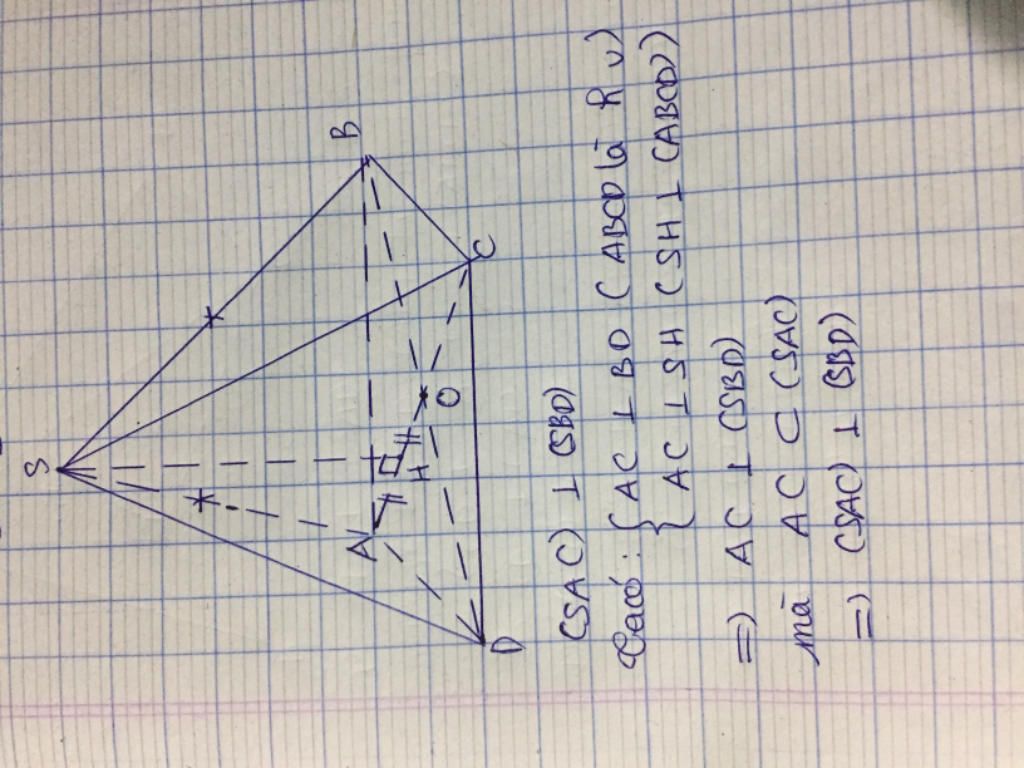 S
B
A
H
O
C
D
(SAC) ⊥ (SBD)
Ta có : { AC ⊥ BD ( ABCD là h v )
{ AC ⊥ SH ( SH ⊥ (ABCD))
=> AC ⊥ (SBD)
mà AC ⊂ (SAC)
=> (SAC) ⊥ (SBD)